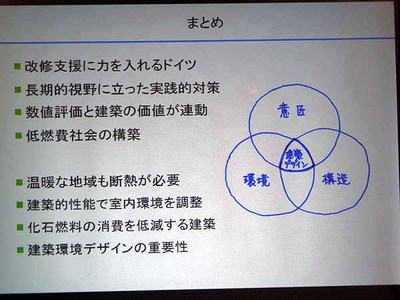 まとめ
■ 改修支援に力を入れるドイツ
■ 長期的視野に立った実践的対策
■ 数値評価と建築の価値が連動
■ 低燃費社会の構築
■ 温暖な地域も断熱が必要
■ 建築的性能で室内環境を調整
■ 化石燃料の消費を低減する建築
■ 建築環境デザインの重要性
意匠
建築
デザイン
環境
構造